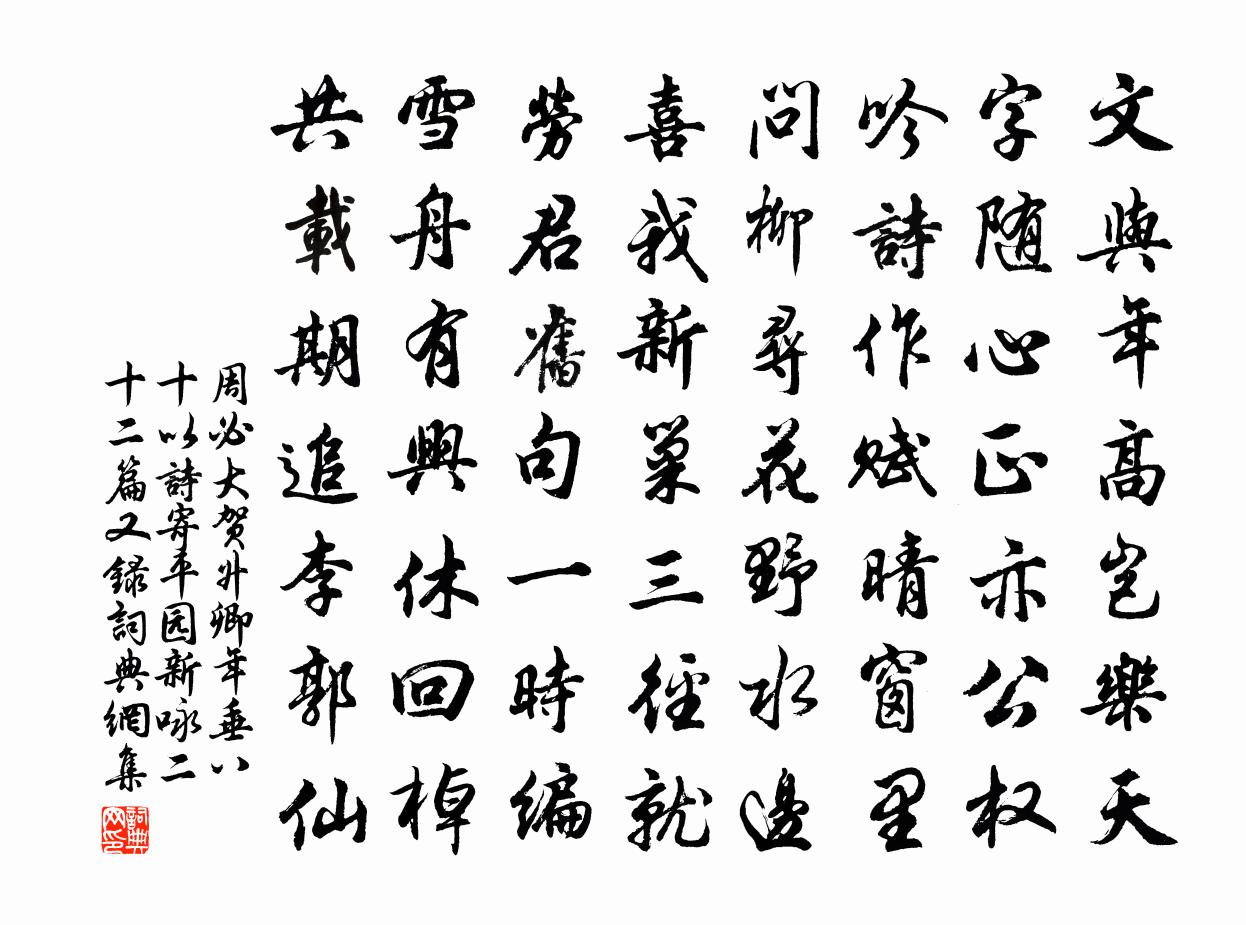 文與年高岂樂天
字随心正亦公权
吟詩作赋晴窗里
問柳尋花野水邊
喜我新巢三徑就
勞君舊句一時編
雪舟有興休回棹
共載期追李郭仙
周必大贺升卿年垂八
十以詩寄平园新咏二
十二篇又録詞典網集
詞典
网印